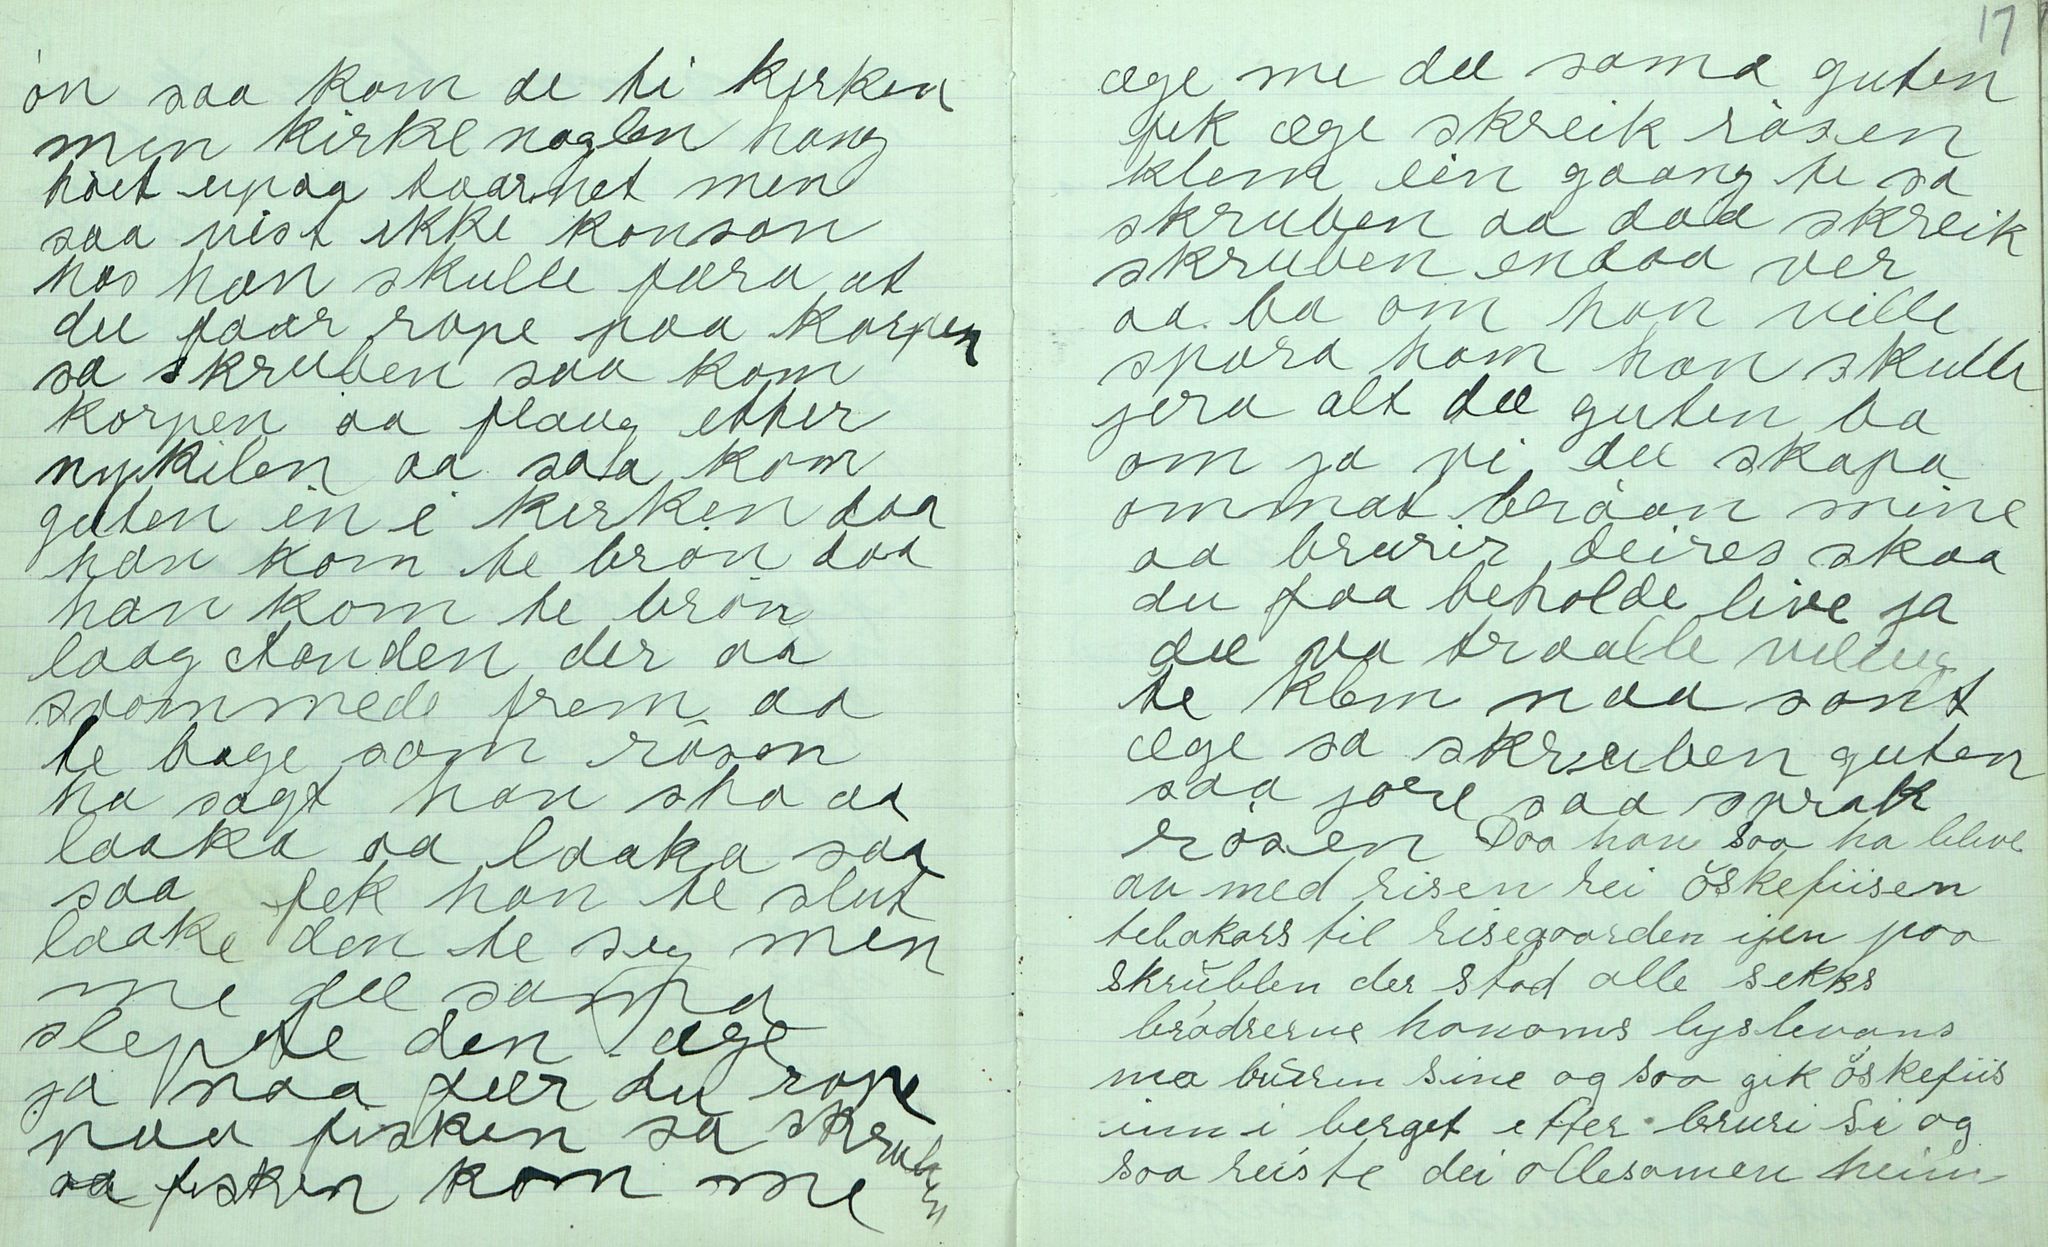 ön saa kom de ti kirken
men kirke naglen hang
höit upaa taarnet men
saa vist ikke konson
hos han skulle færa at
du faar rope paa korpen
sa skruben saa kom
korpen aa flaug etter
nykilen aa saa kom
guten in i kirken daa
han kom te brön daa
han kom te brön
laag anden der aa
svömmede frem aa
te bage som rösen
ha sagt han sto aa
laaka aa laaka saa
saa fek han te slut
laake den te sig men
me dee sama
slepte den æge
ja naa feer du rope
paa fisken sa skruben
aa fisken kom me
17
æge me dee sama guten
fek æge skreik rösen
klem ein gaang te sa
skruben aa daa skreik
skruben endaa ver
aa ba om han ville
spara ham han skulle
jera alt dee guten ba
om ja vi du skapa
ommat bröan mine
aa brurir deires skaa
du faa beholde live ja
dee va traalle villug
te klem naa sont
æge sa skruben guten
saa jore saa sprak
rösen Daa han saa ha bleve
av med risen rei öskefiisen
tebakars til risegaarden ijen paa
skrübben der stod alle sekks
brödrerne honoms lyslevans
ma brüren sine og saa gik öskefiis
inn i berget etter bruri si og
saa reiste dei allesamen heim